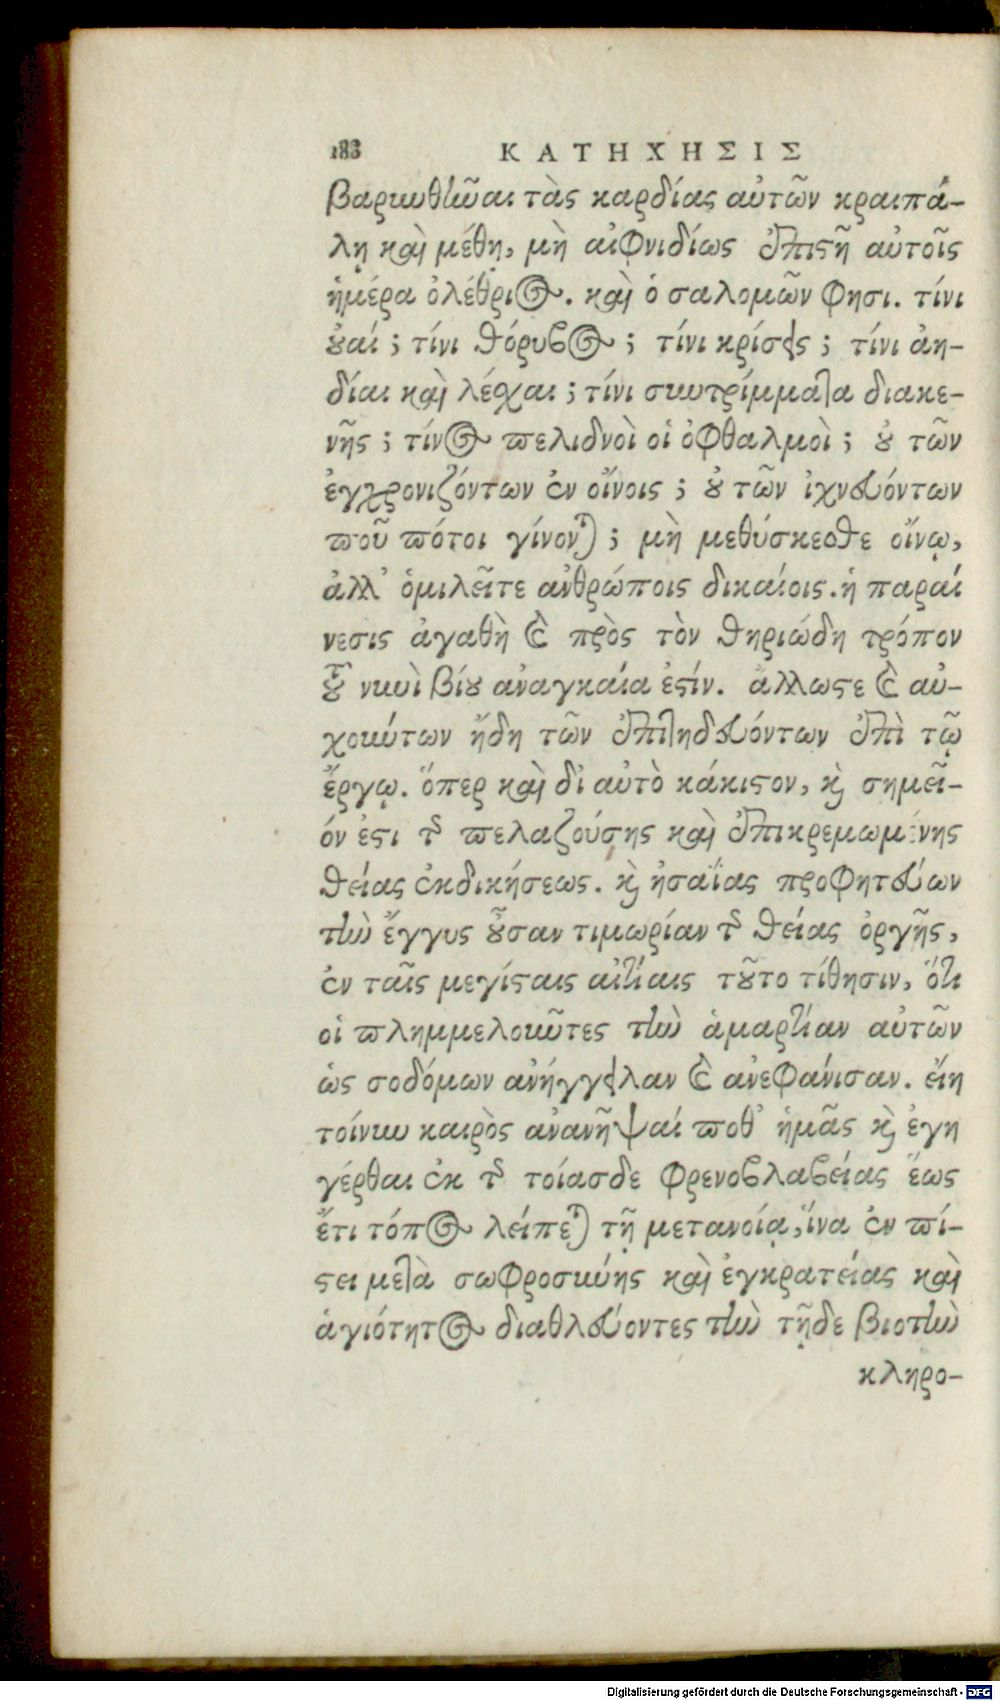 188 ΚΑΤΗΧΗΣΙΣ
βαρυνθῆναι τὰς καρδίας αὐτῶν κραιπά-
λῃ καὶ μέθῃ, μὴ αἰφνιδίως ἐπιστῇ αὐτοῖς
ἡμέρα ὀλέθριος. καὶ ὁ σαλομῶν φησι. τίνι
οὐαί; τίνι θόρυβος; τίνι κρίσεις; τίνι ἀη-
δίαι καὶ λέσχαι; τίνι συντρίμματα διακε-
νῆς; τίνος πελιδνοὶ οἱ ὀφθαλμοὶ; οὐ τῶν
ἐγχρονιζόντων ἐν οἴνοις; οὐ τῶν ἰχνευόντων
ποῦ πότοι γίνονται; μὴ μεθύσκεσθε οἴνῳ,
ἀλλ' ὁμιλεῖτε ἀνθρώποις δικαίοις. ἡ παραί
νεσις ἀγαθὴ καὶ πρὸς τὸν θηριώδη τρόπον
τοῦ νυνὶ βίου ἀναγκαία ἐστίν. ἄλλωστε καὶ αὐ-
χούντων ἤδη τῶν ἐπιτηδευόντων ἐπὶ τῷ
ἔργῳ. ὅπερ καὶ δι αὐτὸ κάκιστον, καὶ σημεῖ-
όν ἐστι τῆς πελαζούσης καὶ ἐπικρεμωμένης
θείας ἐκδικήσεως. καὶ ἠσαΐας προφητεύων
τὴν ἔγγυς οὖσαν τιμωρίαν τῆς θείας ὀργῆς,
ἐν ταῖς μεγίσταις αἰτίαις τοῦτο τίθησιν, ὅτι
οἱ πλημμελοῦντες τὴν ἁμαρτίαν αὐτῶν
ὡς σοδόμων ἀνήγγειλαν καὶ ἀνεφάνισαν. εἴη
τοίνυν καιρὸς ἀνανῆψαί ποθ' ἡμᾶς καὶ ἐγη
γέρθαι ἐκ τῆς τοίασδε φρενοβλαβείας ἕως
ἔτι τόπος λείπεται τῇ μετανοίᾳ, ἵνα ἐν πί-
στει μετὰ σωφροσύνης καὶ ἐγκρατείας καὶ
ἁγιότητος διαθλεύοντες τὴν τῇδε βιοτὴν
κληρο-
Digitalisierung gefördert durch die Deutsche Forschungsgemeinschaft - DFG